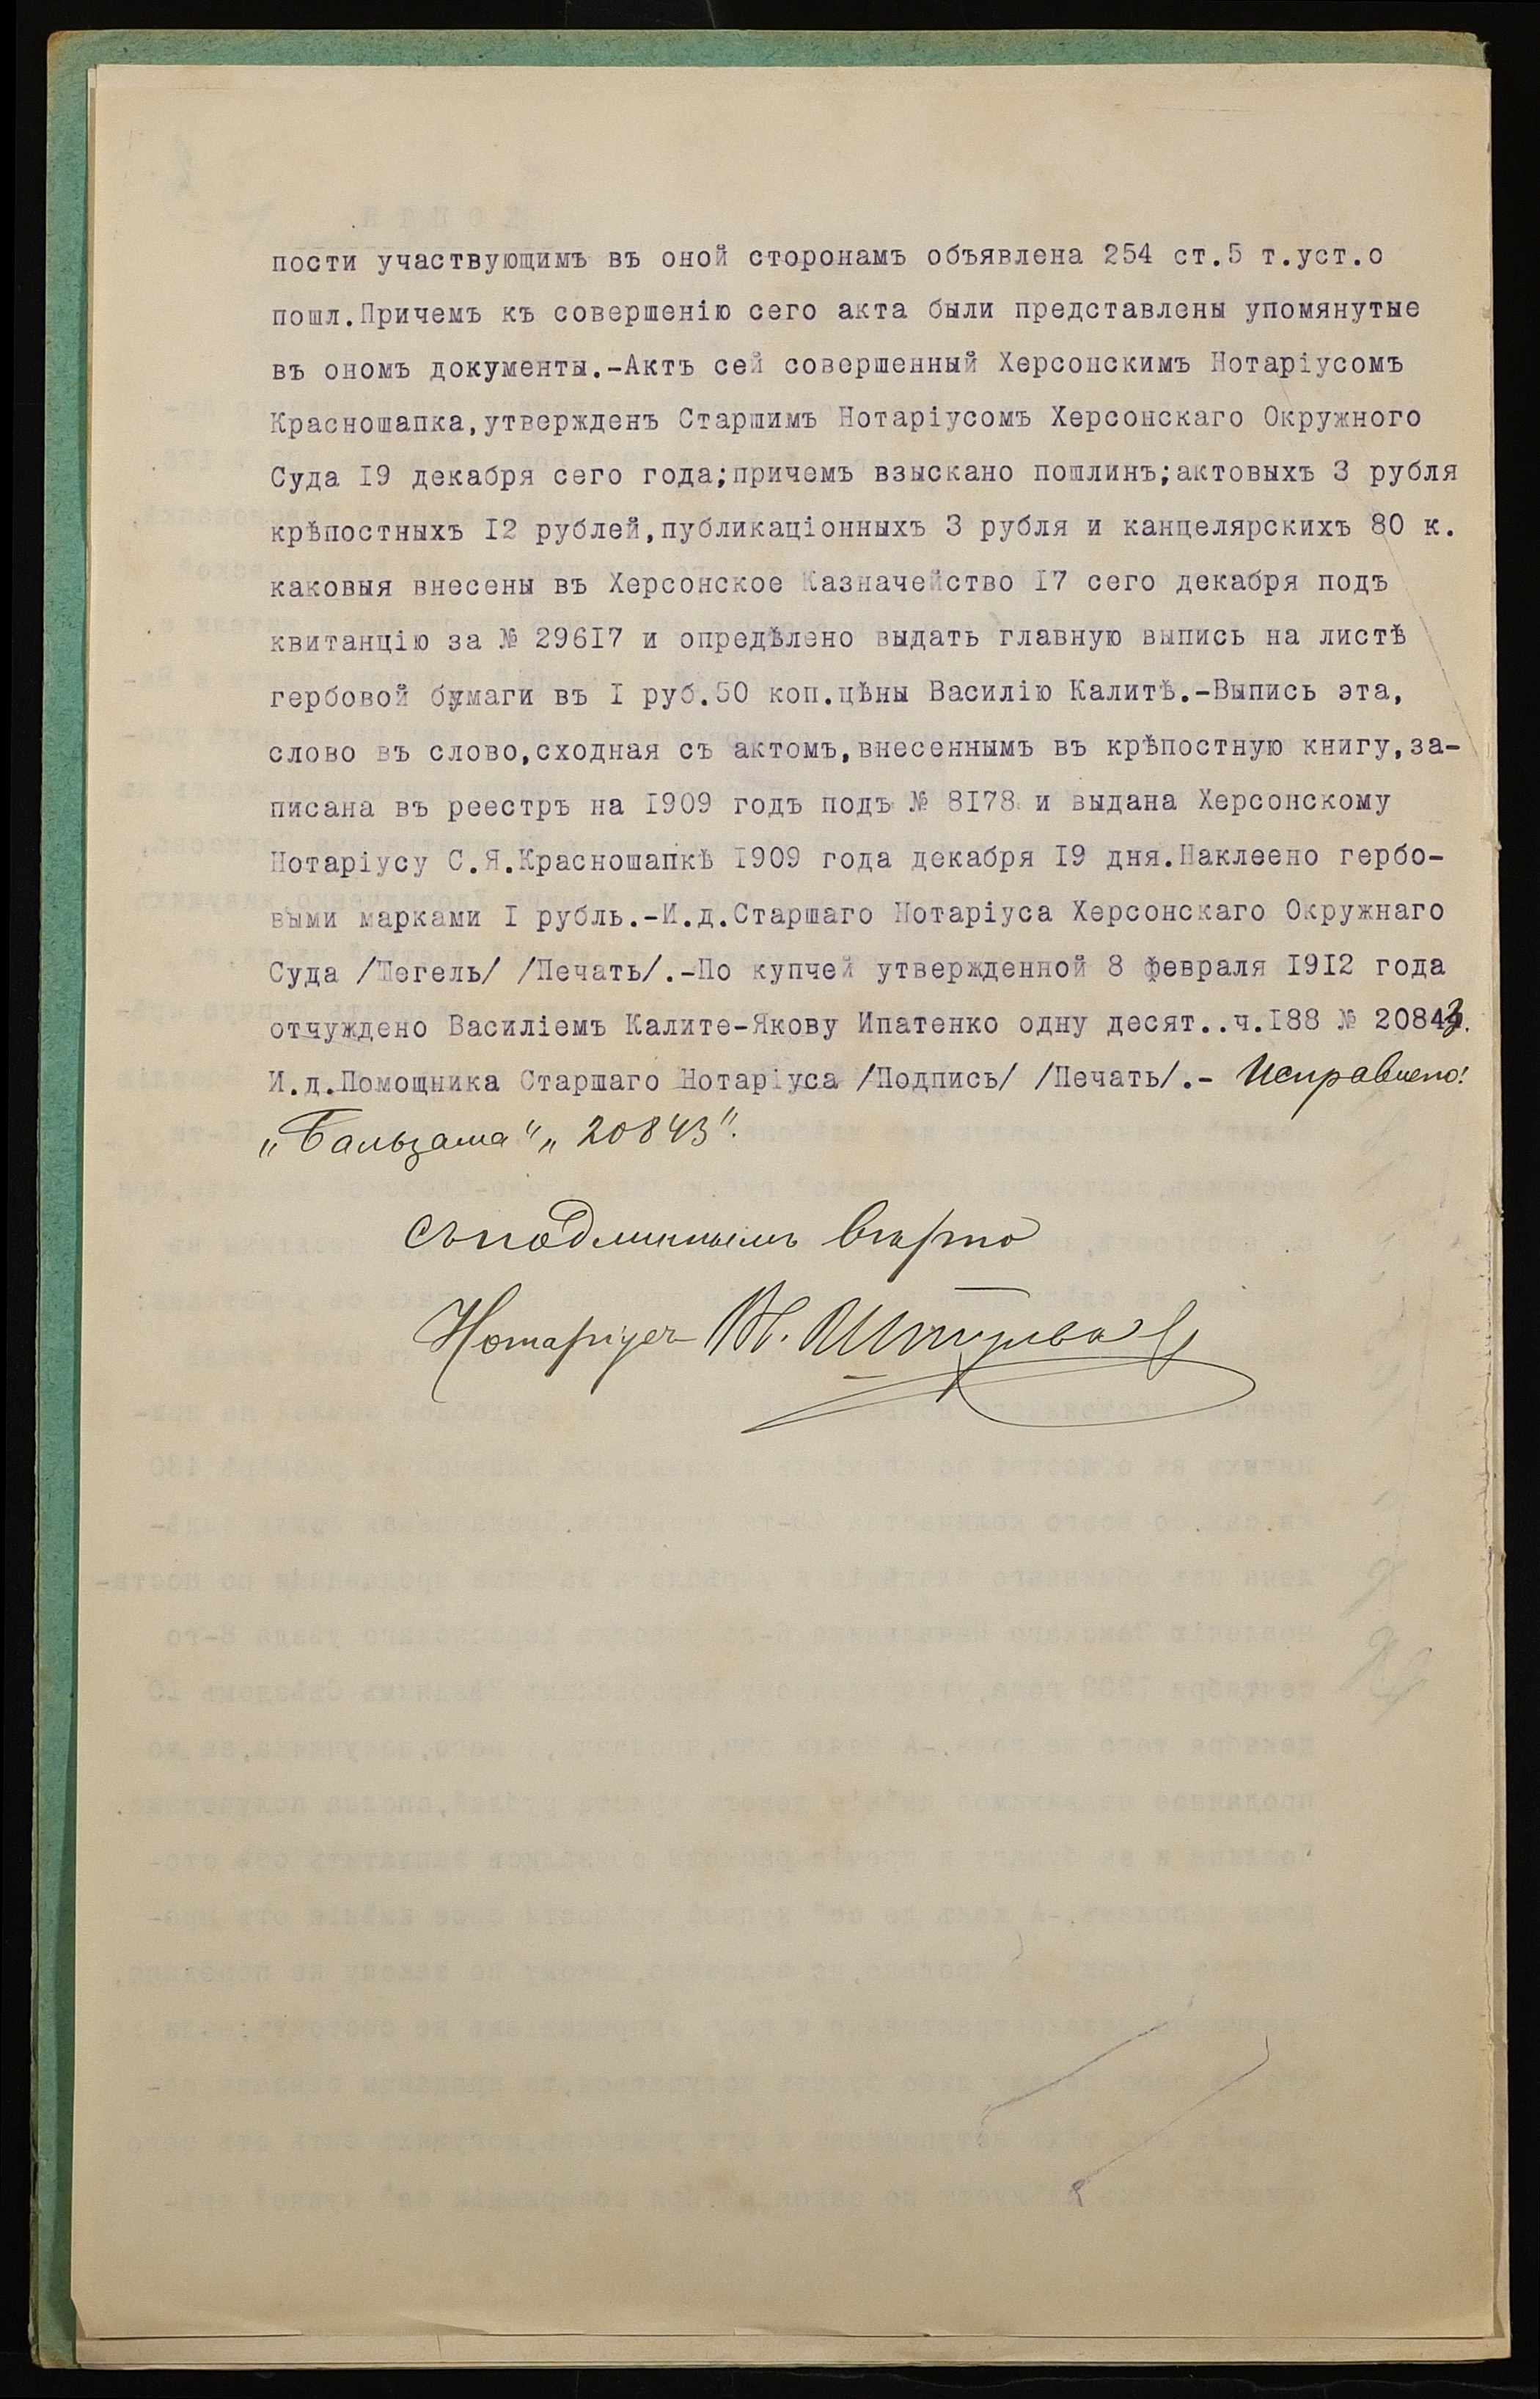 пости участвующимъ въ оной сторонамъ объявлена 254 ст.5 т.уст.о
пошл.Причемъ къ совершенію сего акта были представлены упомянутые
въ ономъ документы.-Актъ сей совершенный Херсонскимъ Нотаріусомъ
Красношапка,утвержденъ Старшимъ Нотаріусомъ Херсонскаго Окружного
Суда I9 декабря сего года;причемъ взыскано пошлинъ;актовыхъ 3 рубля
крѣпостныхъ I2 рублей,публикаціонныхъ 3 рубля и канцелярскихъ 80 к.
каковыя внесены въ Херсонское Казначейство I7 сего декабря подъ
квитанцію за № 296I7 и опредѣлено выдать главную выпись на листѣ
гербовой бумаги въ I руб.50 коп.цѣны Василію Калитѣ.-Выпись эта,
слово въ слово,сходная съ актомъ,внесеннымъ въ крѣпостную книгу,за-
писана въ реестръ на I909 годъ подъ № 8I78 и выдана Херсонскому
Нотаріусу С.Я.Красношапкѣ I909 года декабря I9 дня.Наклеено гербо-
выми марками I рубль.-И.д.Старшаго Нотаріуса Херсонскаго Окружнаго
Суда /Шегель/ /Печать/.-По купчей утвержденной 8 февраля I9I2 года
отчуждено Василіемъ Калите-Якову Ипатенко одну десят..ч.I88 № 20843.
И.д.Помощника Старшаго Нотаріуса /Подпись/ /Печать/.- Исправлено:
„ "„ 20843".
Съ подлиннымъ вѣрно
Нотаріусъ